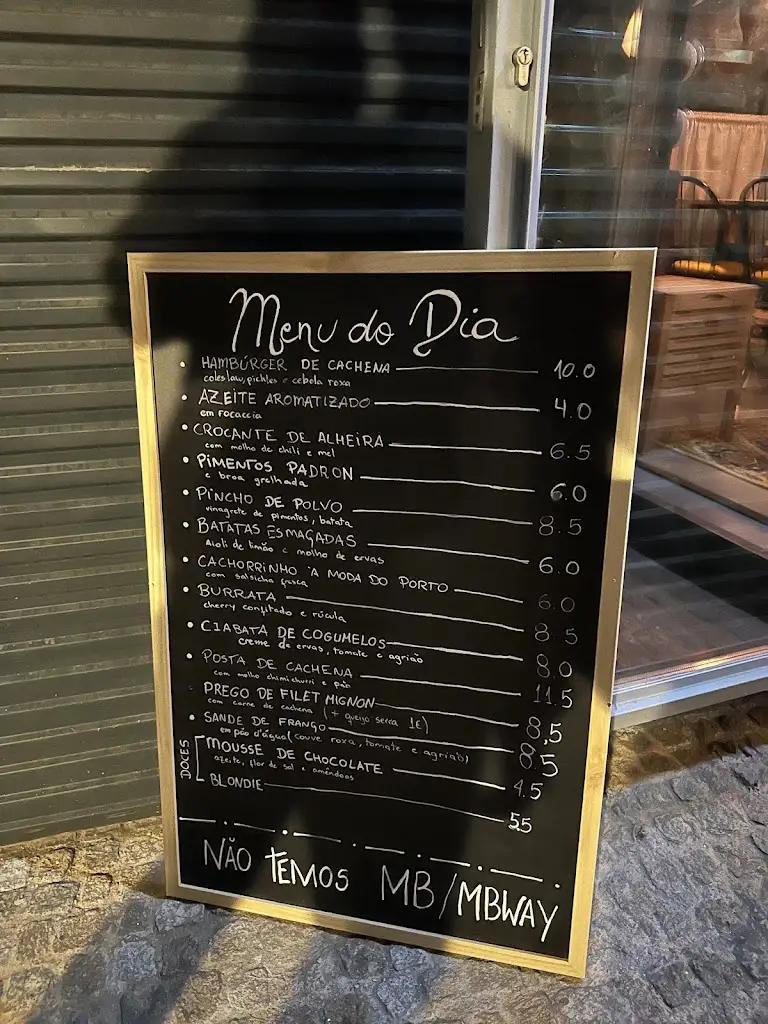 Menu do Dia
• HAMBÚRGER DE CACHENA 10.0
coleslaw, pickles e cebola roxa
• AZEITE AROMATIZADO 4.0
em focaccia
• CROCANTE DE ALHEIRA 6.5
com molho de chili e mel
• PIMENTOS PADRON 6.0
e broa grelhada
• PINCHO DE POLVO 8.5
vinagrete de pimentos, batata
• BATATAS ESMAGADAS 6.0
Aioli de limão e molho de ervas
• CACHORRINHO À MODA DO PORTO 6.0
com salsicha fresca
• BURRATA 8.5
cherry confitado e rúcula
• CIABATA DE COGUMELOS 8.0
creme de ervas, tomate e agrião
• POSTA DE CACHENA 11.5
com molho chimichurri e pão
• PREGO DE FILET MIGNON 8,5
com carne de cachena (+ queijo serra 1€)
• SANDE DE FRANGO 8.5
em pão d'água (couve roxa, tomate e agrião)
DOCES
MOUSSE DE CHOCOLATE 4.5
azeite, flor de sal e amêndoas
BLONDIE 5.5
NÃO TEMOS MB/MBWAY